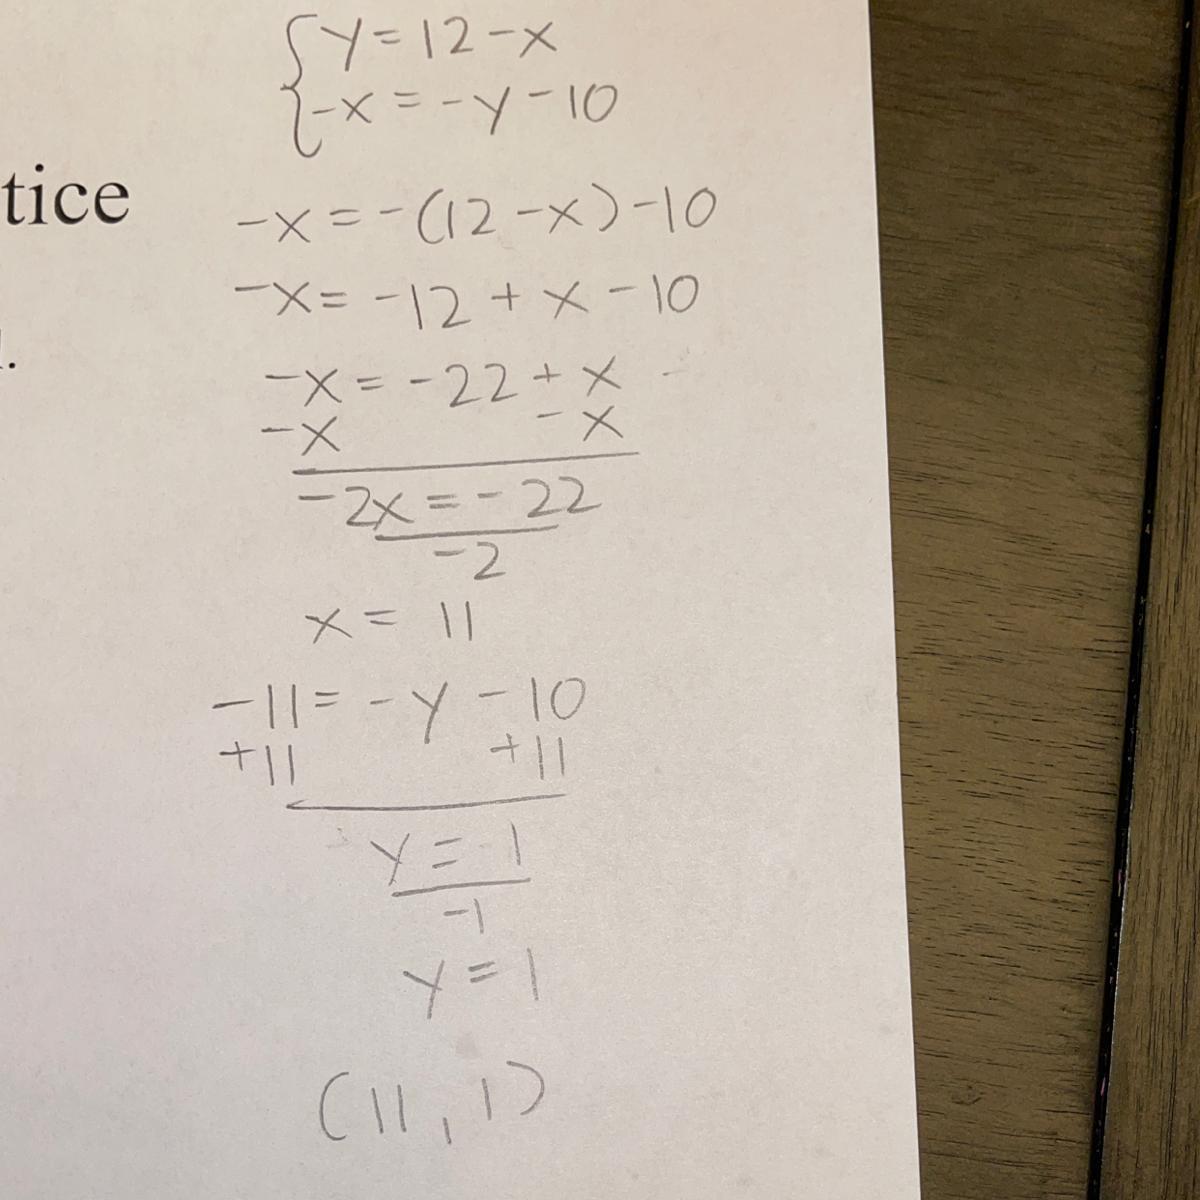 y = 12 - x
-x = -y - 10
tice
-x = -(12 - x) - 10
-x = -12 + x - 10
-x = -22 + x
-x - x
-2x = -22
-2
x = 11
-11 = -y - 10
+11 +11
y = 1
-1
y = 1
(11, 1)